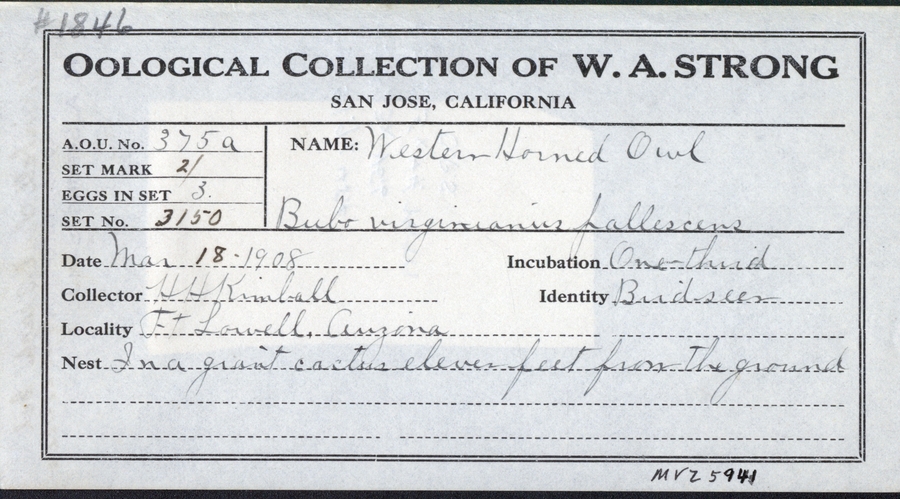 #1846
OOLOGICAL COLLECTION OF W. A. STRONG
SAN JOSE, CALIFORNIA
A.O.U. No. 375a
SET MARK 2/
EGGS IN SET 3.
SET No. 3150
NAME: Western Horned Owl
Bubo virginianus pallescens
Date Mar 18-1908 Incubation One-third
Collector H H Kimball Identity Bird seen
Locality Ft Lowell. Arizona
Nest In a giant cactus eleven feet from the ground
MVZ 5941